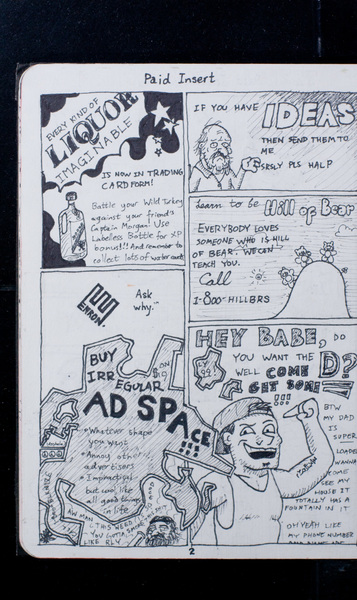 Paid Insert
EVERY KIND OF
LIQUOR
IMAGINABLE
IS NOW IN TRADING
CARD FORM!
Battle your Wild Turkey
against your friend's
Captain Morgan! Use
Labeless Bottle for XP
bonus!!! And remember to
collect lots of water cards
IF YOU HAVE IDEAS
THEN SEND THEM TO
ME
SRSLY PLS HALP
Learn to be Hill of Bear
EVERYBODY LOVES
SOMEONE WHO IS HILL
OF BEAR. WE CAN
TEACH YOU.
Call
1-800-HILLBRS
ENRON.
Ask
why.™
BUY
IRR
EGULAR
AD SPACE
!!!
ON
• Whatever shape
you want
• Annoy other
advertisers
• Impractical
but cool like
all good things
in life
AW MAN
THIS WEED
YOU GOTTA SMOKE
LIKE RLY
HEY BABE, DO
YOU WANT THE D?
WELL COME
GET SOME
!!!
BTW
MY DAD
IS
SUPER
LOADED
WANNA
COME
SEE MY
HOUSE IT
TOTALLY HAS A
FOUNTAIN IN IT
OH YEAH LIKE
MY PHONE NUMBER
2